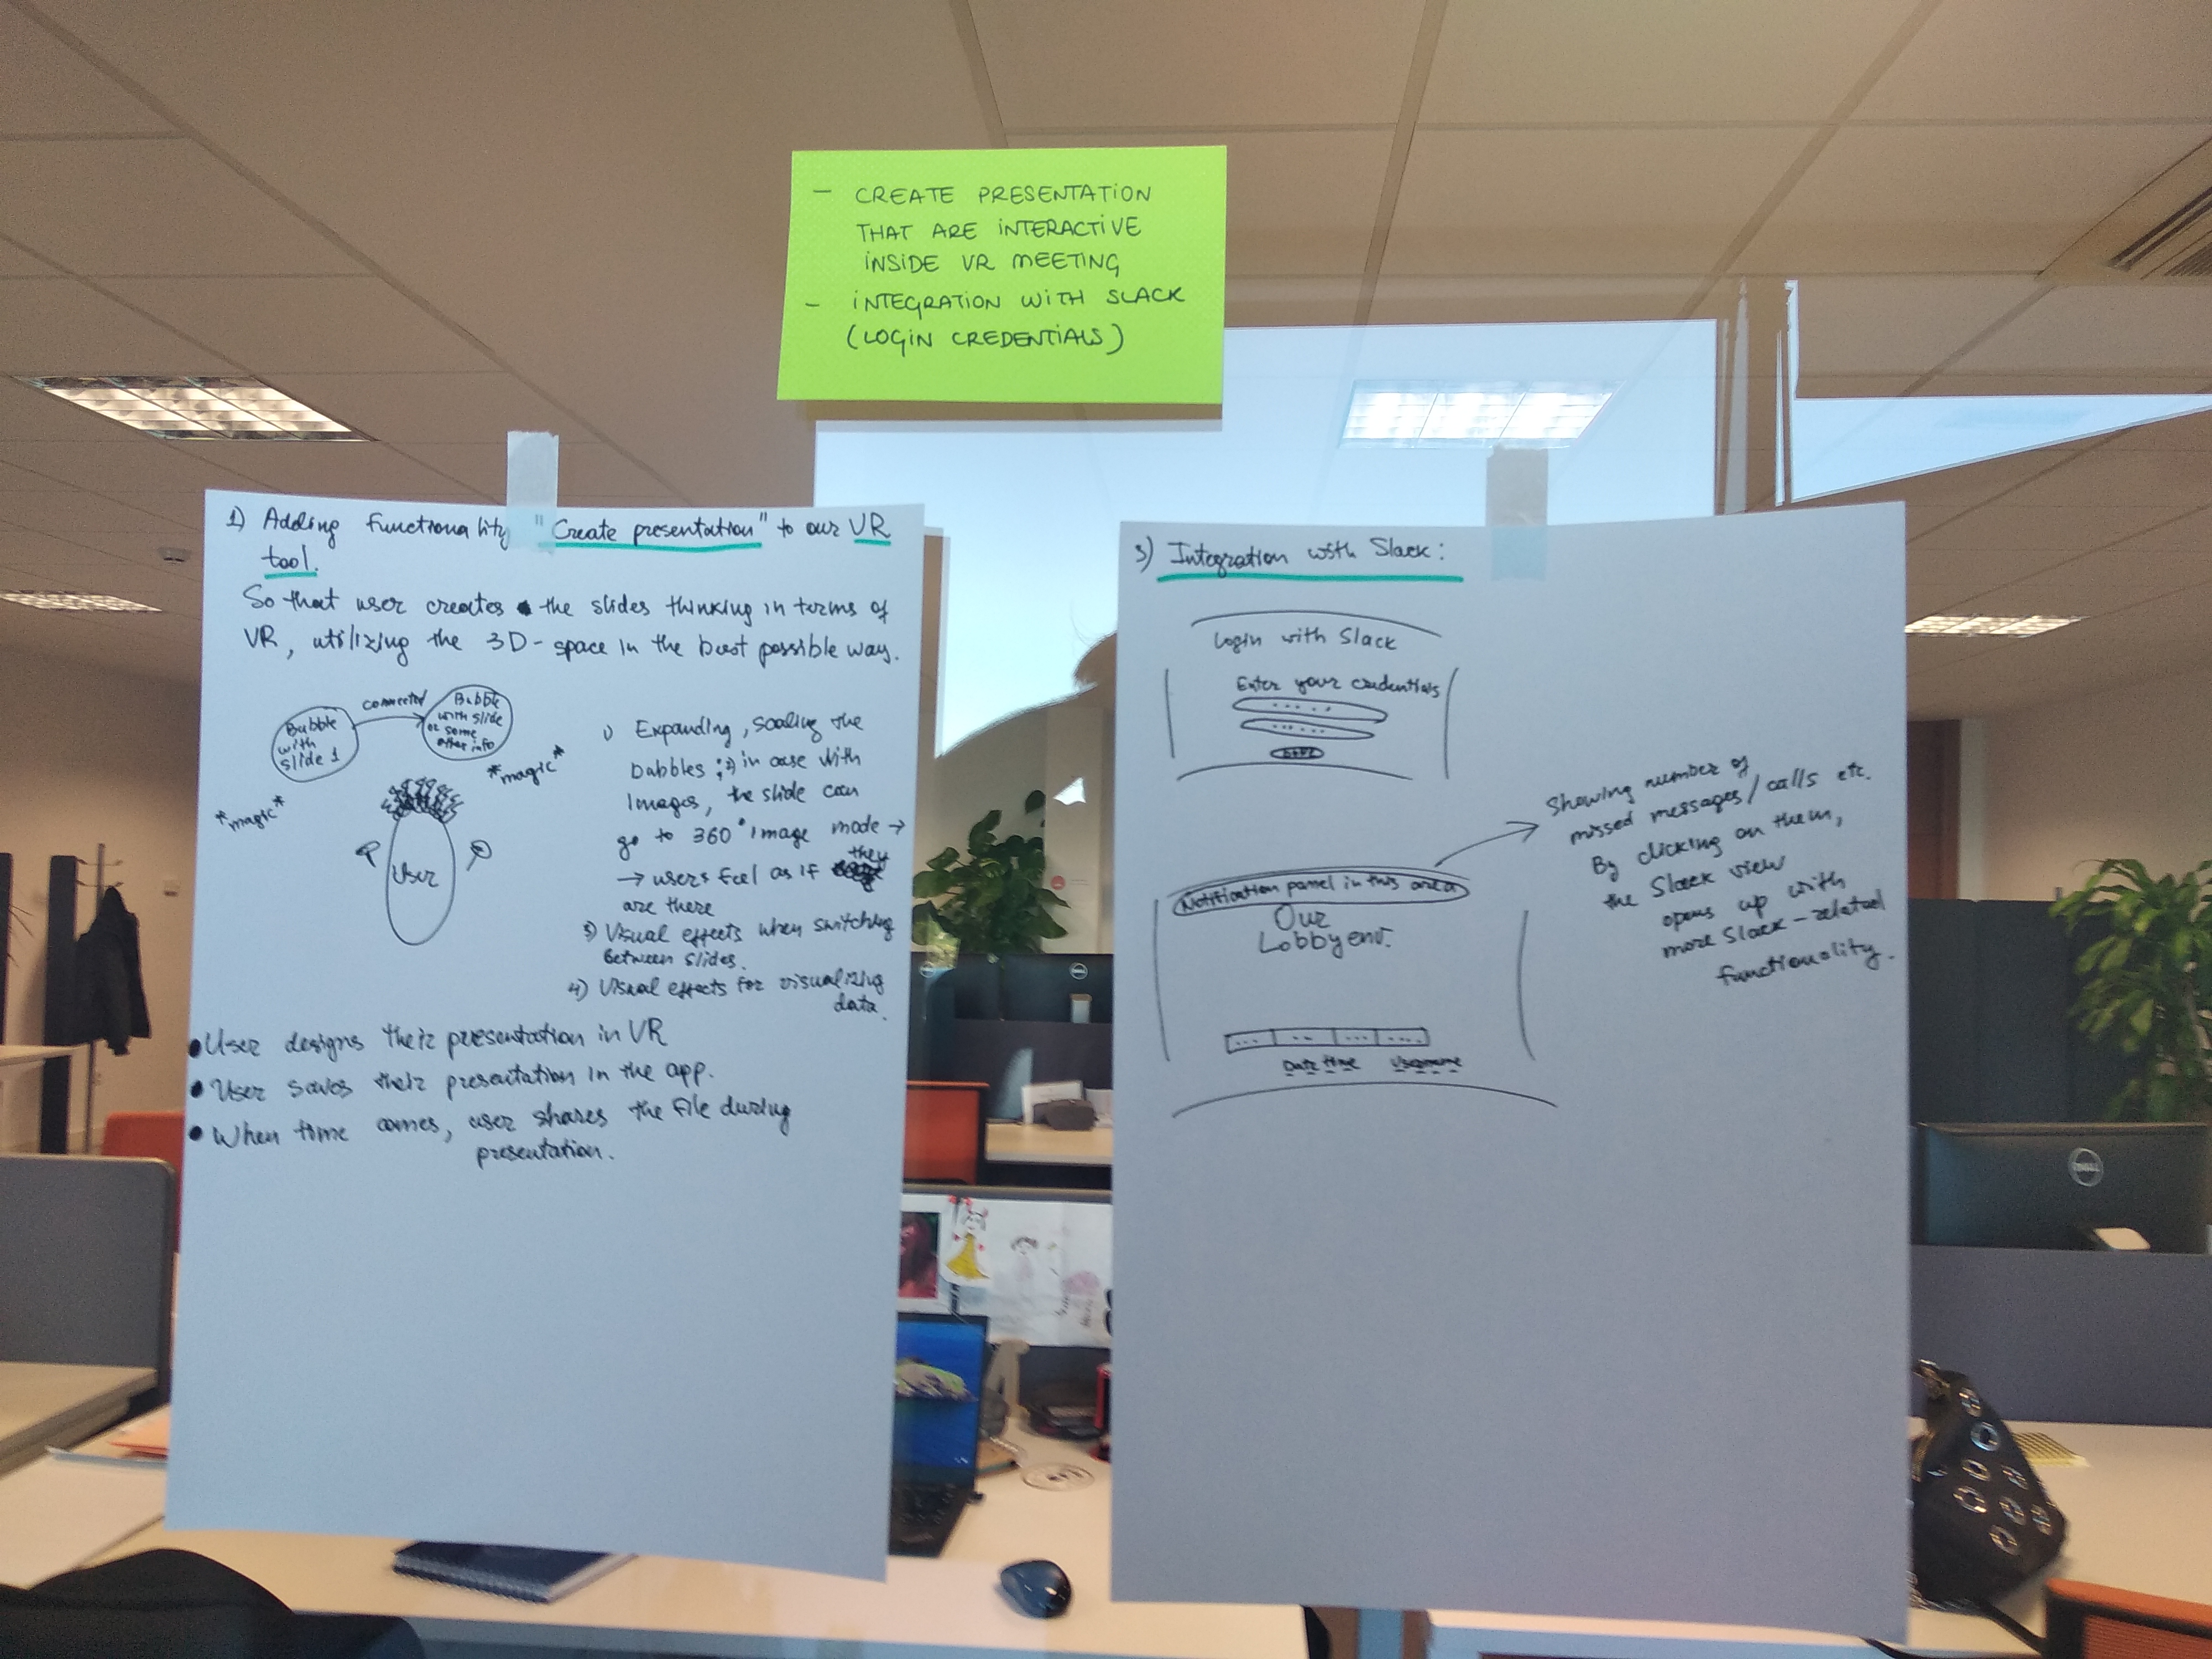 - CREATE PRESENTATION
THAT ARE INTERACTIVE
INSIDE VR MEETING
- INTEGRATION WITH SLACK
(LOGIN CREDENTIALS)
1) Adding functionality "Create presentation" to our VR
tool.
So that user creates the slides thinking in terms of
VR, utilizing the 3D-space in the best possible way.
Bubble
with
slide 1
connected
Bubble
with slide
or some
other info
*magic*
*magic*
User
1) Expanding, scaling the
babbles ; 2) in case with
images, the slide can
go to 360° image mode →
→ users feel as if they
are there
3) Visual effects when switching
between slides.
4) Visual effects for visualizing
data.
• User designs their presentation in VR
• User saves their presentation in the app.
• When time comes, user shares the file during
presentation.
3) Integration with Slack:
Login with Slack
Enter your credentials
Showing number of
missed messages/calls etc.
By clicking on them,
the Slack view
opens up with
more Slack-related
functionality.
Notification panel in this area
Our
Lobby env.
Date time Username
DELL
DELL